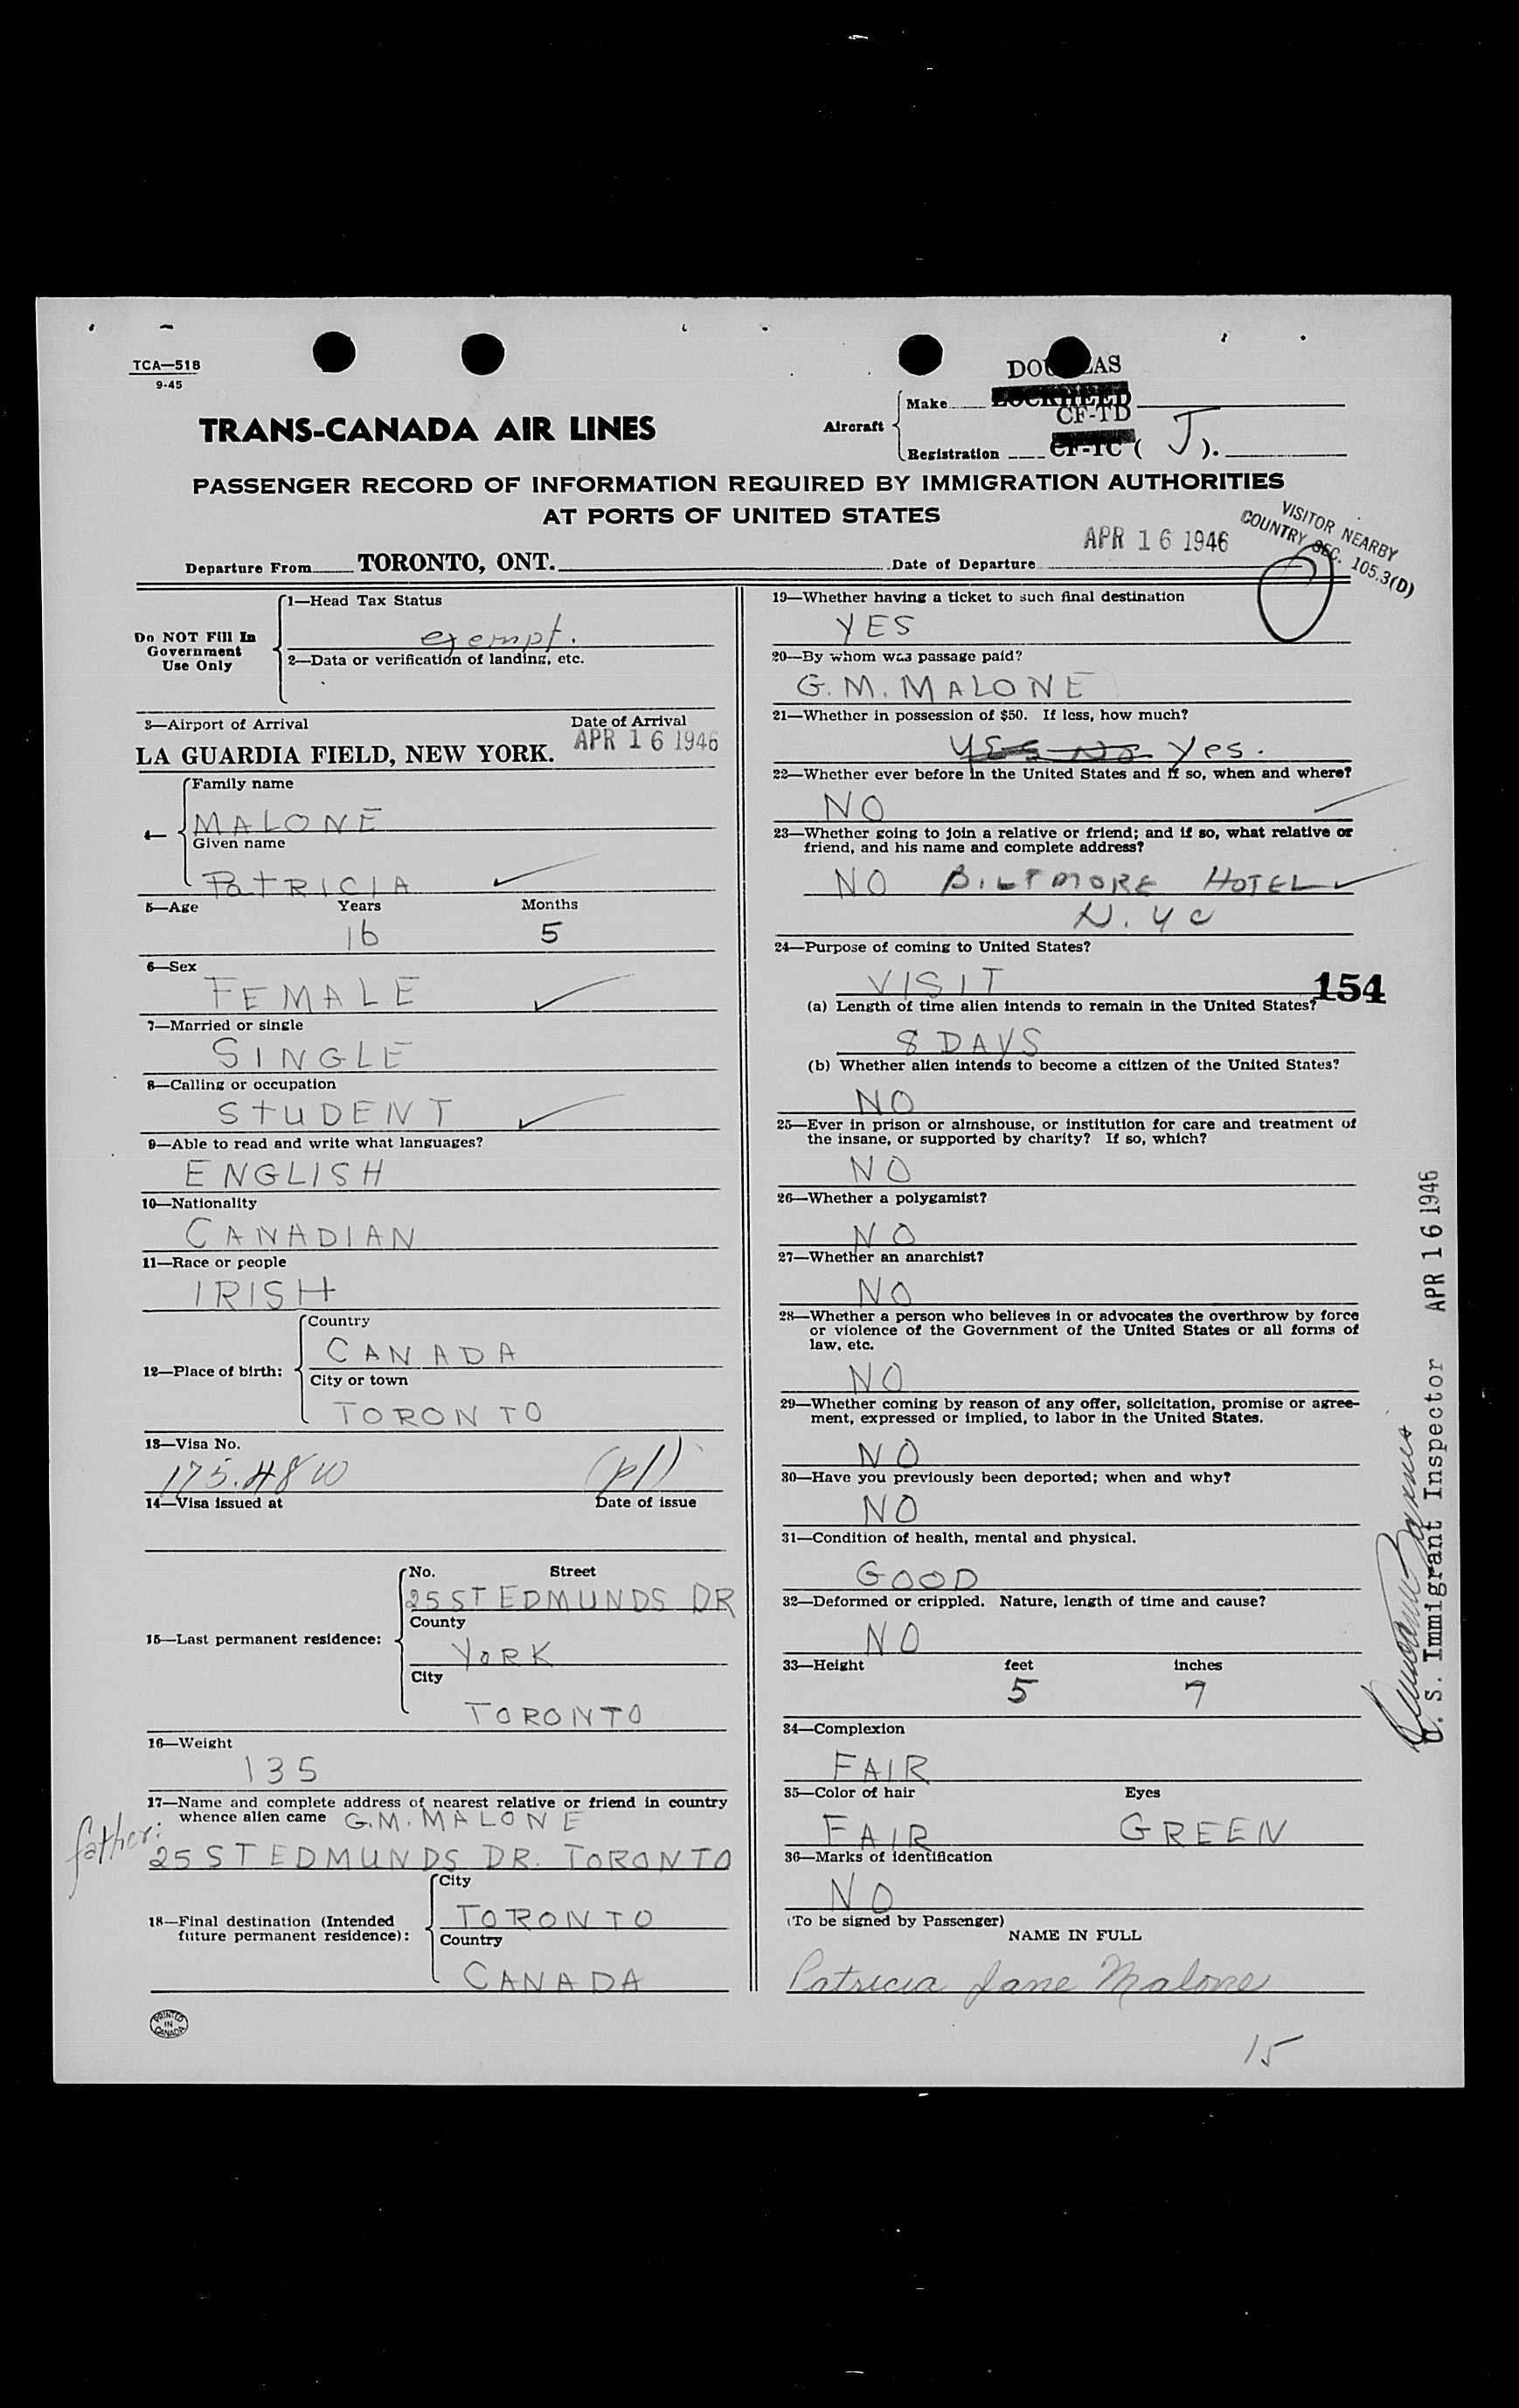 TCA—518
9-45
TRANS-CANADA AIR LINES
Aircraft
Make
DOUGLAS
LOCKHEED
CF-TD
Registration CF-TC ( J ).
PASSENGER RECORD OF INFORMATION REQUIRED BY IMMIGRATION AUTHORITIES
AT PORTS OF UNITED STATES
VISITOR NEARBY
COUNTRY SEC. 105.3(D)
Departure From TORONTO, ONT. Date of Departure APR 16 1946
Do NOT Fill In
Government
Use Only
1—Head Tax Status
exempt.
2—Data or verification of landing, etc.
3—Airport of Arrival Date of Arrival
LA GUARDIA FIELD, NEW YORK. APR 16 1946
4—
Family name
MALONE
Given name
PATRICIA
5—Age Years Months
16 5
6—Sex
FEMALE
7—Married or single
SINGLE
8—Calling or occupation
STUDENT
9—Able to read and write what languages?
ENGLISH
10—Nationality
CANADIAN
11—Race or people
IRISH
12—Place of birth:
Country
CANADA
City or town
TORONTO
13—Visa No.
(p/)
14—Visa issued at Date of issue
15—Last permanent residence:
No. Street
25 ST EDMUNDS DR
County
YORK
City
TORONTO
16—Weight
135
17—Name and complete address of nearest relative or friend in country
whence alien came G.M. MALONE
father:
25 ST EDMUNDS DR. TORONTO
18—Final destination (Intended
future permanent residence):
City
TORONTO
Country
CANADA
PRINTED
IN
CANADA
19—Whether having a ticket to such final destination
YES
20—By whom was passage paid?
G. M. MALONE
21—Whether in possession of $50. If less, how much?
YES NO Yes.
22—Whether ever before in the United States and if so, when and where?
NO
23—Whether going to join a relative or friend; and if so, what relative or
friend, and his name and complete address?
NO BILTMORE HOTEL
N.Y.C
24—Purpose of coming to United States?
VISIT
154
(a) Length of time alien intends to remain in the United States?
8 DAYS
(b) Whether alien intends to become a citizen of the United States?
NO
25—Ever in prison or almshouse, or institution for care and treatment of
the insane, or supported by charity? If so, which?
NO
26—Whether a polygamist?
NO
27—Whether an anarchist?
NO
28—Whether a person who believes in or advocates the overthrow by force
or violence of the Government of the United States or all forms of
law, etc.
NO
29—Whether coming by reason of any offer, solicitation, promise or agree-
ment, expressed or implied, to labor in the United States.
NO
30—Have you previously been deported; when and why?
NO
31—Condition of health, mental and physical.
GOOD
32—Deformed or crippled. Nature, length of time and cause?
NO
33—Height feet inches
5 7
34—Complexion
FAIR
35—Color of hair Eyes
FAIR GREEN
36—Marks of identification
NO
(To be signed by Passenger)
NAME IN FULL
Patricia Jane Malone
15
U. S. Immigrant Inspector APR 16 1946